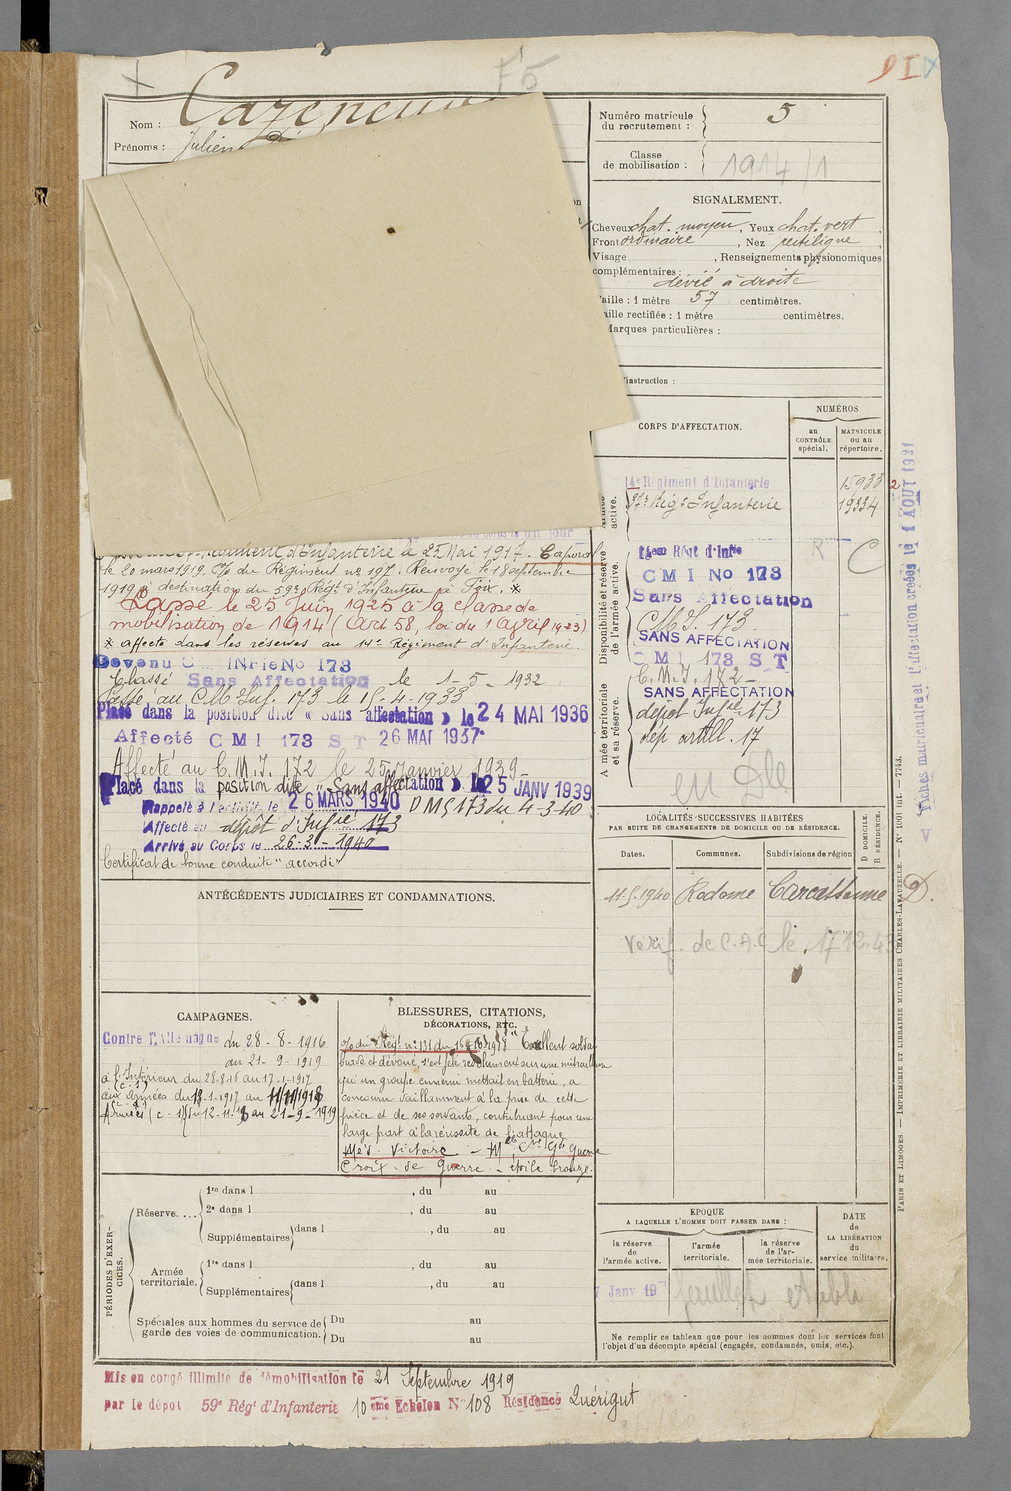 F5
Nom : Cazeneuve
Prénoms : Julien
Numéro matricule
du recrutement : 5
Classe
de mobilisation : 1914/1
SIGNALEMENT.
Cheveux chat. moyen, Yeux chat. vert,
Front ordinaire, Nez rectiligne,
Visage , Renseignements physionomiques
complémentaires :
dévié à droite
aille : 1 mètre 57 centimètres.
aille rectifiée : 1 mètre centimètres.
Marques particulières :
'instruction :
CORPS D'AFFECTATION.
NUMÉROS
au
CONTRÔLE
spécial.
MATRICULE
ou au
répertoire.
active.
14e Régiment d'Infanterie 15933 2
Rég t Infanterie 19334
Disponibilité et réserve
de l'armée active.
14eme Régt d'Infie R C
CMI No 173
Sans Affectation
C.M.I. 173.
SANS AFFECTATION
CMI 173 ST
C.M.I. 172 -
A mée territoriale
et sa réserve.
SANS AFFECTATION
dépôt Infie 173
dép artill. 17
Fiches matriculaire et l'affectation créées le 1 AOUT 1921
Régiment d'Infanterie le 25 Mai 1917. Caporal
le 20 mars 1919. O/ du Régiment no 197. Renvoyé le 18 septembre
1919 à destination du 59e Régt d'Infanterie à Foix. *
Passé le 25 Juin 1925 à la classe de
mobilisation de 1914 (Art 58, loi du 1 avril 1923)
* affecté dans les réserves au 14e Régiment d'Infanterie.
Devenu CM INfie No 173
Classé Sans Affectation le 1-5-1932
Passé au CM Inf. 173 le 15-4-1933
Placé dans la position dite « Sans affectation » le 24 MAI 1936
Affecté CMI 173 ST 26 MAI 1937
Affecté au C.M.I. 172 le 25 Janvier 1939-
Placé dans la position dite "Sans affectation » le 25 JANV 1939
Rappelé à l'activité le 26 MARS 1940 DMI 173 du 4-3-40
Affecté au dépôt d'Infie 173
Arrivé au Corps le 26-3-1940
Certificat de bonne conduite "accordé"
ANTÉCÉDENTS JUDICIAIRES ET CONDAMNATIONS.
LOCALITÉS SUCCESSIVES HABITÉES
PAR SUITE DE CHANGEMENTS DE DOMICILE OU DE RÉSIDENCE.
Dates.
Communes.
Subdivisions de région
D DOMICILE.
R RÉSIDENCE.
11-5-1940 Rodome Carcassonne D.
Vérif. de C.A.C le 17 12.43
CAMPAGNES.
Contre l'Allemagne du 28-8-1916
au 21-9-1919
à l'Intérieur du 28.8.16 au 17-1-1917
aux armées du 18-1-1917 au 11/11/1918
Armées du 12-11-18 au 21-9-1919
BLESSURES, CITATIONS,
DÉCORATIONS, ETC.
O/ du Régt no 131 du 1918 "Excellent soldat
brave et dévoué, s'est jeté résolument sur une mitrailleuse
qu'un groupe ennemi mettait en batterie, a
concouru vaillamment à la prise de cette
pièce et de ses servants, contribuant pour une
large part à la réussite de l'attaque
Mée Victoire - Mlle Cve Gde Guerre
Croix de guerre - étoile bronze.
PÉRIODES D'EXER-
CICES.
Réserve....
1re dans l , du au
2e dans l , du au
Supplémentaires dans l , du au
Armée
territoriale.
1re dans l , du au
Supplémentaires dans l , du au
Spéciales aux hommes du service de
garde des voies de communication.
Du au
Du au
ÉPOQUE
A LAQUELLE L'HOMME DOIT PASSER DANS :
la réserve
de
l'armée active.
l'armée
territoriale.
la réserve
de l'ar-
mée territoriale.
DATE
de
LA LIBÉRATION
du
service militaire.
Janv 19
feuillet établi
Ne remplir ce tableau que pour les hommes dont les services font
l'objet d'un décompte spécial (engagés, condamnés, omis, etc.).
PARIS ET LIMOGES. — IMPRIMERIE ET LIBRAIRIE MILITAIRES CHARLES-LAVAUZELLE. — No 1001 int. — 7743.
Mis en congé illimité de démobilisation le 21 Septembre 1919
par le dépôt 59e Régt d'Infanterie 10eme Echelon No 108 Résidence Quérigut